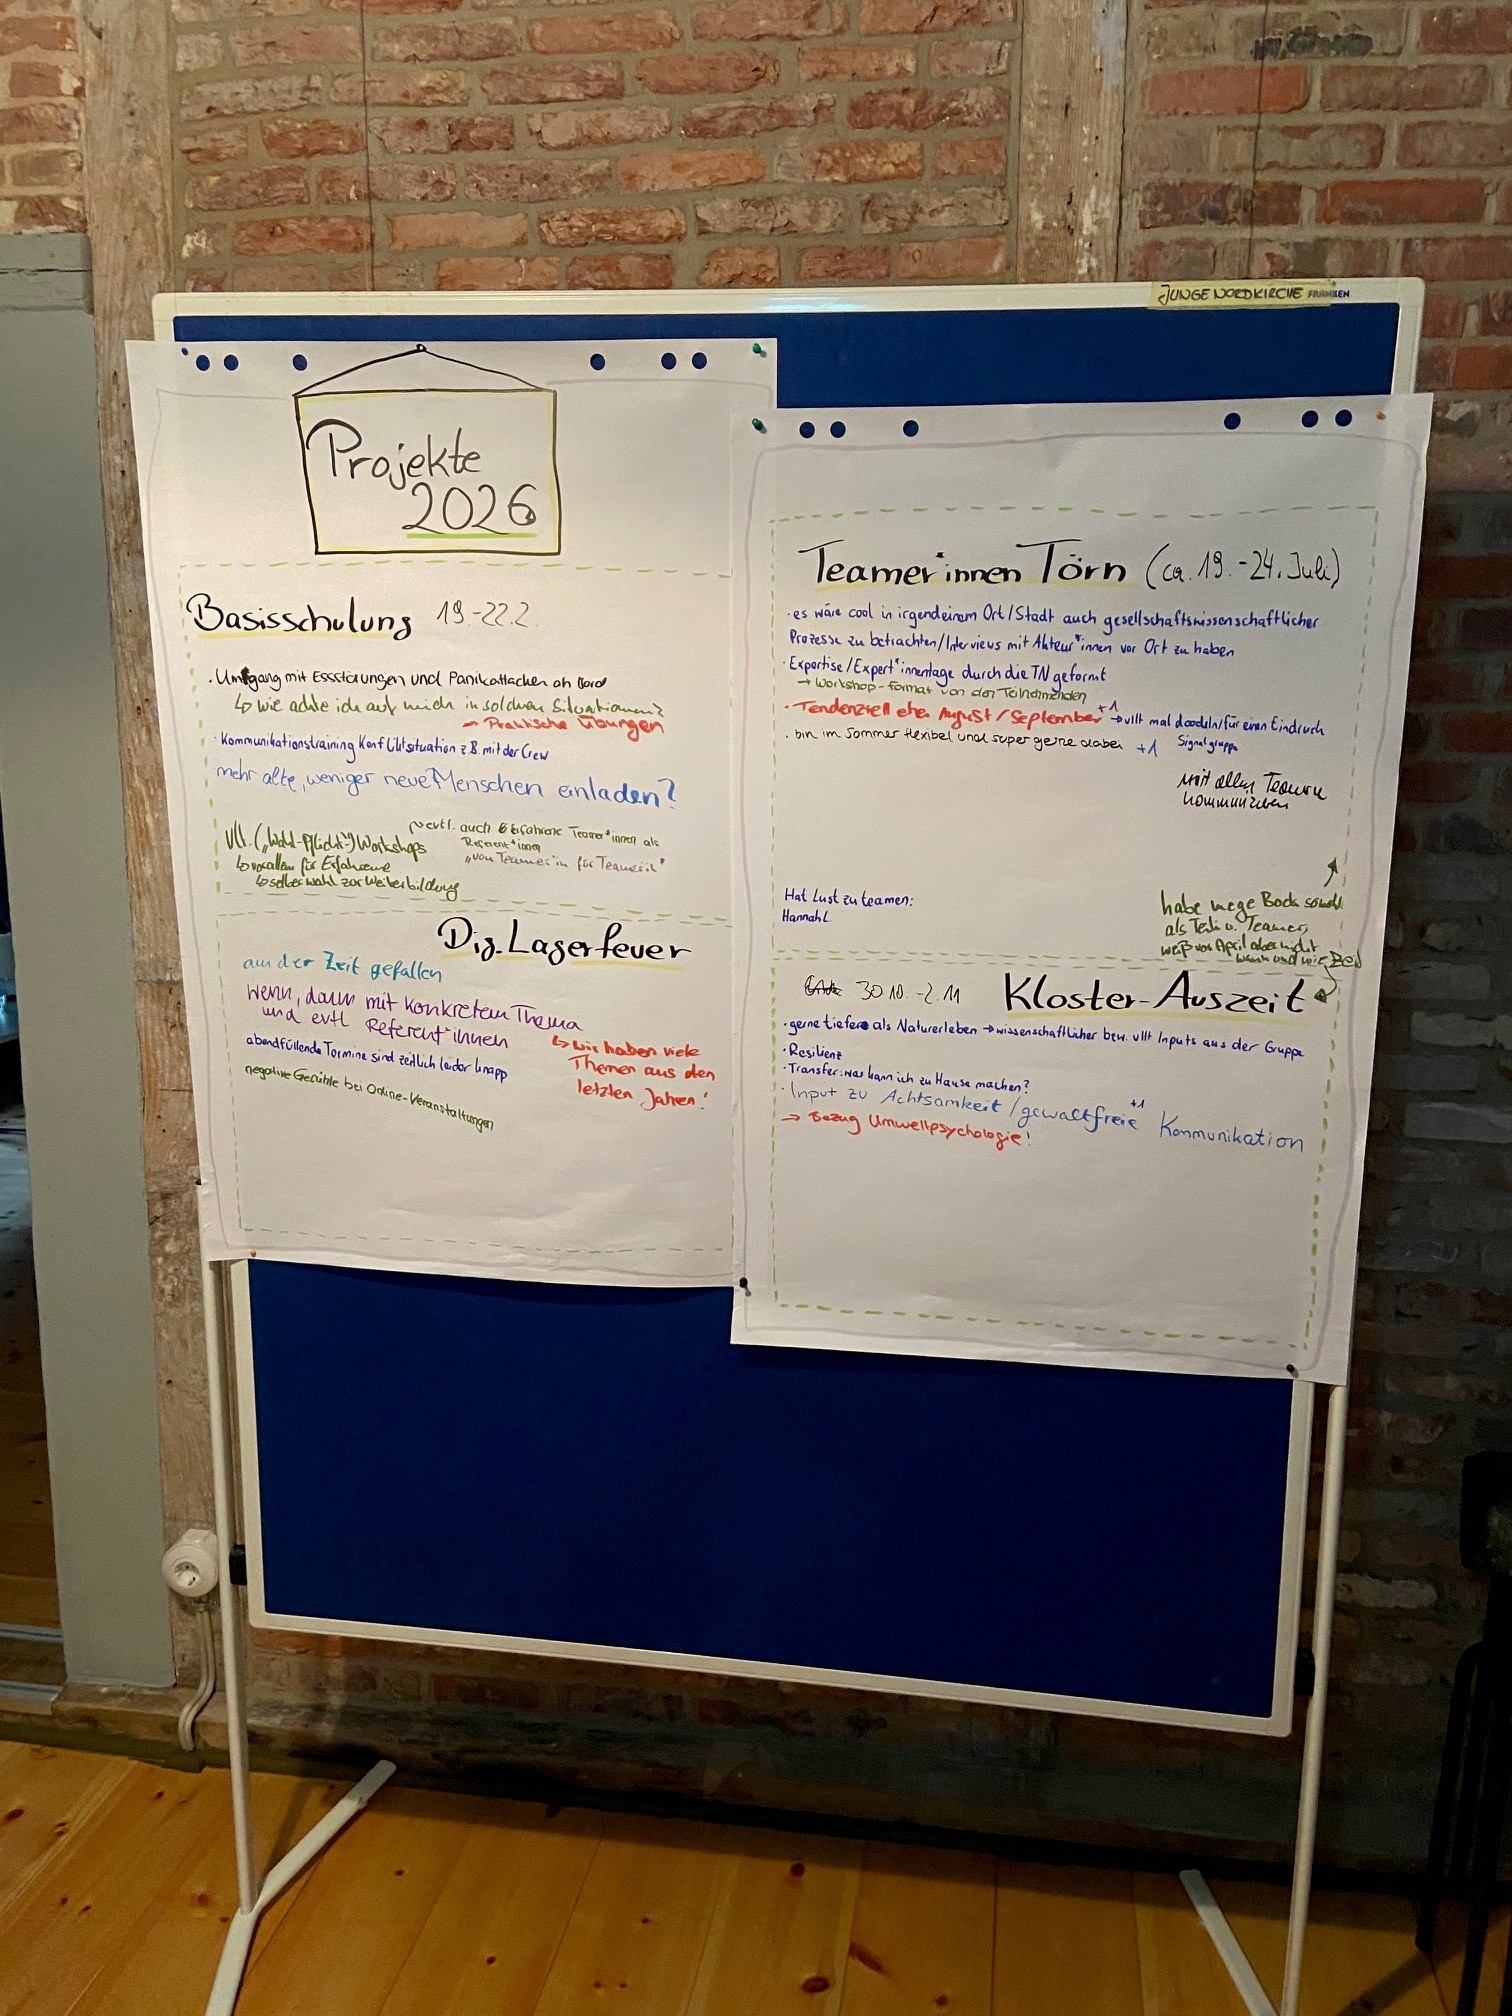 JUNGE NORDKIRCHE FRANKEN
Projekte
2026
Basisschulung 19.-22.2.
· Umgang mit Essstörungen und Panikattacken an Bord
↳ wie achte ich auf mich in solchen Situationen?
→ Praktische Übungen
· Kommunikationstraining Konfliktsituation z.B. mit der Crew
mehr alte, weniger neue Menschen einladen?
Vll. („Wahl-Pflicht“-) Workshops
↳ vor allem für Erfahrene
↳ selber wahl zur Weiterbildung
evtl. auch Erfahrene Teamer*innen als
Referent*innen
„von Teamer*in für Teamer*in“
Dig. Lagerfeuer
aus der Zeit gefallen
wenn, dann mit konkretem Thema
und evtl Referent*innen
↳ wir haben viele
Themen aus den
letzten Jahren!
abendfüllende Termine sind zeitlich leider knapp
negative Gefühle bei Online-Veranstaltungen
Teamer*innen Törn (ca. 19.-24. Juli)
· es wäre cool in irgendeinem Ort/Stadt auch gesellschaftswissenschaftlicher
Prozesse zu betrachten/Interviews mit Akteur*innen vor Ort zu haben
· Expertise/Expert*innentage durch die TN geformt
→ Workshop-Format von den Teilnehmenden
· Tendenziell eher August/September +1 → vllt mal doodeln/für einen Eindruck
Signalgruppe
· bin im Sommer flexibel und super gerne dabei +1
mit allen Teamern
kommunizieren
Hat Lust zu teamen:
Hannah L.
habe mega Bock sowohl
als Teili o. Teamer,
weiß vor April aber nicht
wann und wie Zeit
30.10.-2.11 Kloster-Auszeit
· gerne tiefere als Naturerleben → wissenschaftlicher bzw. vllt Inputs aus der Gruppe
· Resilienz
· Transfer: was kann ich zu Hause machen?
· Input zu Achtsamkeit / gewaltfreie +1 Kommunikation
→ Bezug Umweltpsychologie!